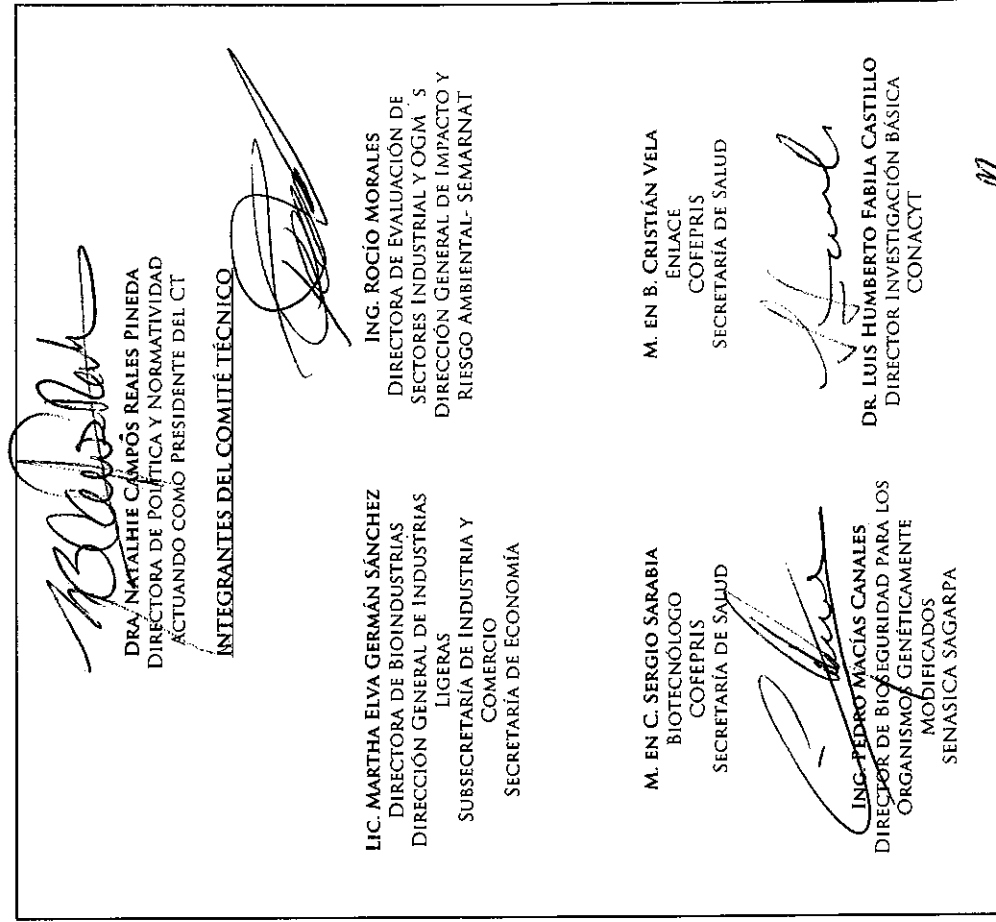 DRA. NATALHIE CAMPOS REALES PINEDA
DIRECTORA DE POLÍTICA Y NORMATIVIDAD
ACTUANDO COMO PRESIDENTE DEL CT
INTEGRANTES DEL COMITÉ TÉCNICO
LIC. MARTHA ELVA GERMÁN SÁNCHEZ
DIRECTORA DE BIOINDUSTRIAS
DIRECCIÓN GENERAL DE INDUSTRIAS
LIGERAS
SUBSECRETARÍA DE INDUSTRIA Y
COMERCIO
SECRETARÍA DE ECONOMÍA
ING. ROCÍO MORALES
DIRECTORA DE EVALUACIÓN DE
SECTORES INDUSTRIAL Y OGM´S
DIRECCIÓN GENERAL DE IMPACTO Y
RIESGO AMBIENTAL- SEMARNAT
M. EN C. SERGIO SARABIA
BIOTECNÓLOGO
COFEPRIS
SECRETARÍA DE SALUD
M. EN B. CRISTIÁN VELA
ENLACE
COFEPRIS
SECRETARÍA DE SALUD
ING. PEDRO MACÍAS CANALES
DIRECTOR DE BIOSEGURIDAD PARA LOS
ORGANISMOS GENÉTICAMENTE
MODIFICADOS
SENASICA SAGARPA
DR. LUIS HUMBERTO FABILA CASTILLO
DIRECTOR INVESTIGACIÓN BÁSICA
CONACYT